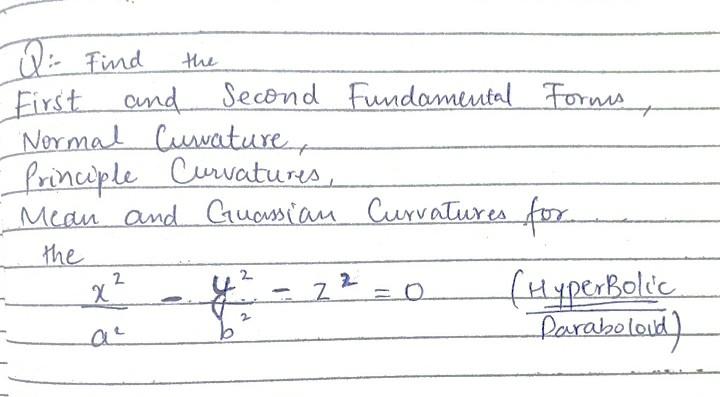 Q:- Find the
First and Second Fundamental Forms,
Normal Curvature,
Principle Curvatures,
Mean and Guassian Curvatures for
the
x²/a² - y²/b² - z² = 0 (HyperBolic
Paraboloid)